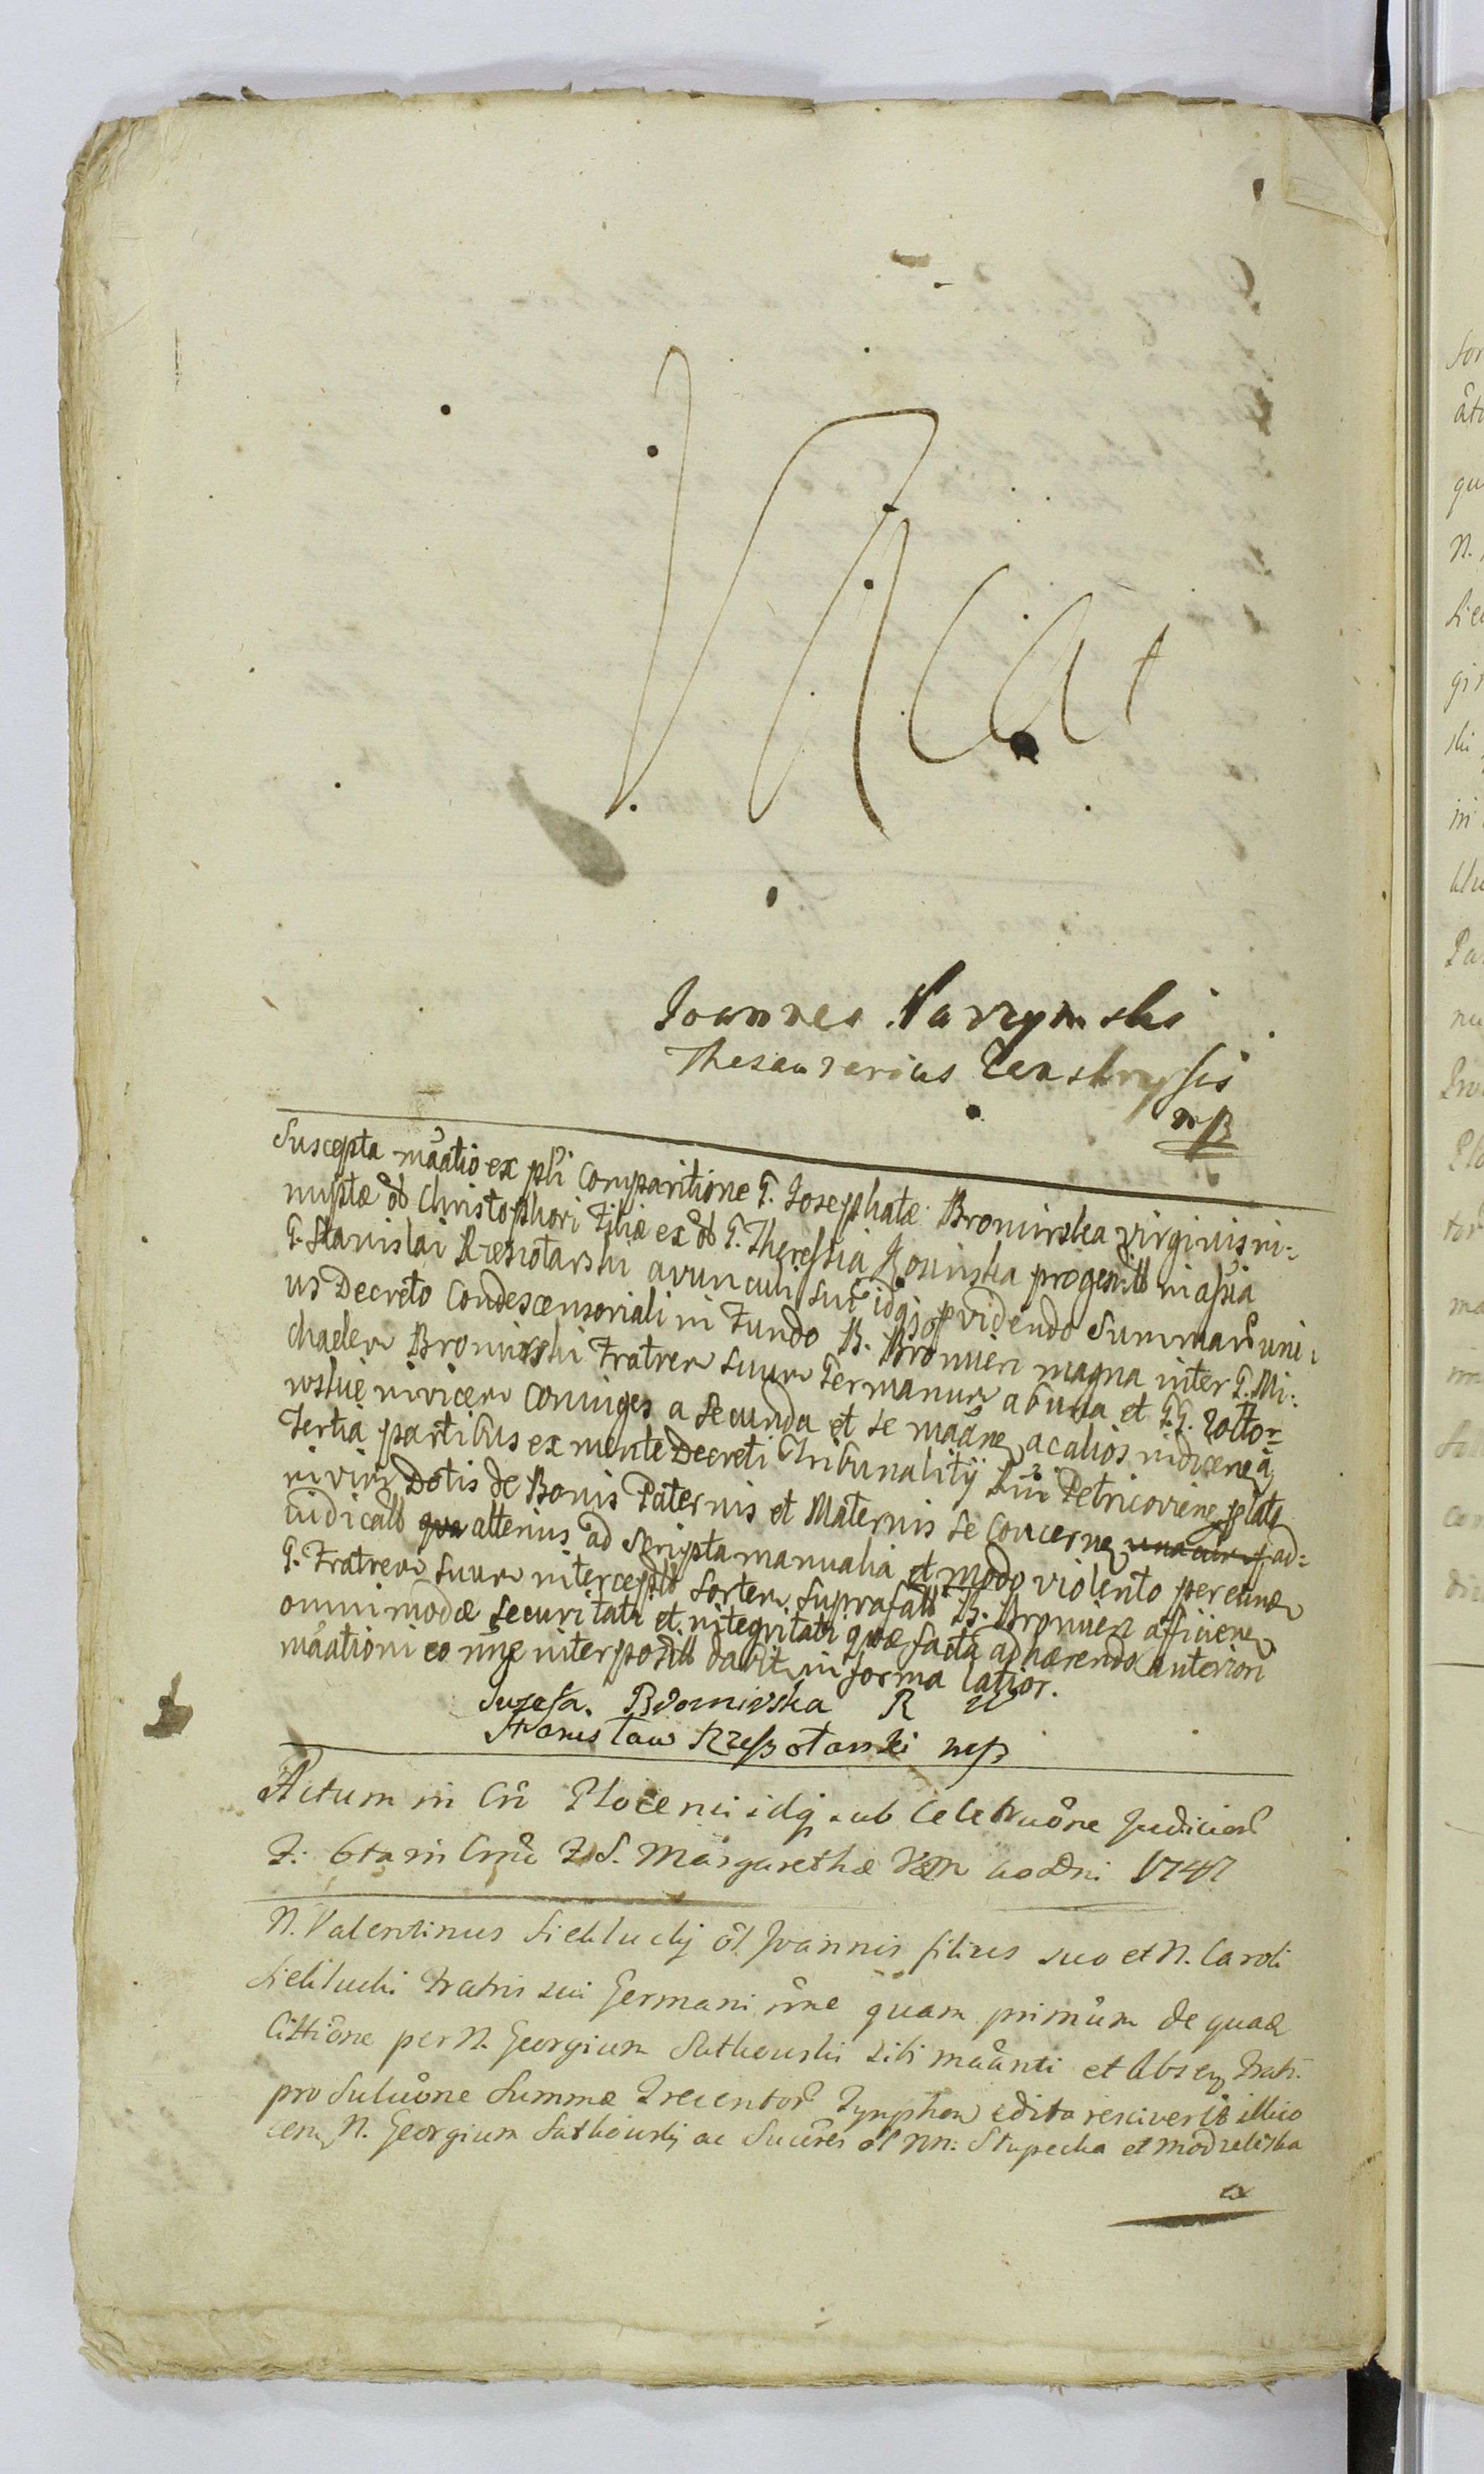 Vacat
Joannes Narzymski
Thesaurarius
mp
Suscepta mãatio ex pti Comparitione G. Josephatæ Bromirska virginis in:
nuptæ ol Christophori Filiæ ex ol G. Theressia Kosinska in assia
G. Stanislai Rzeszotarski avunculi sui idq; pvidendo Summar uni:
us Decreto Condescensoriali in Fundo B. Bromierz magna inter G. Mi:
chaelem Bromirski Fratrem Suum Germanum ab una et G.G. Zotto:
wskie invicem Conjuges a Secunda et se mãane ac alios
Tertia partibus ex mente Decreti Tribunalitij Petricoviene
Dotis de Bonis Paternis et Maternis se Concerne ad:
iudicatt qua alterius ad Scripta manualia et modo violento per eundem
G. Fratrem Suum intercept Sortem Suprafatt B. Bromierz afficiene
omnimodæ Securitati et integritati quæ facta adhærendo anteriori
mãationi eo nne interposit in forma latior.
Juzefa. Bromirska R W
Stanisław Rzeszotarski mp
Actum in Crũ Plocensi idq; sub Celebruõne Judicior
F. 6ta in Crño F. S. Margarethæ Vgm 1747
N. Valentinus Sieklucky ol Joannis filius suo et N. Caroli
Sieklucki Fratris sui Germani nne quam primum de quad
Cittione per N. Georgium Sutkowski sibi mãanti et Absen Fratri
pro Soluõne Summæ Trecentor Tynphon edita resciverit illico
eem N. Georgium Sutkowsky ac Succres ol NN. Słupecka et Modzeleska
ex